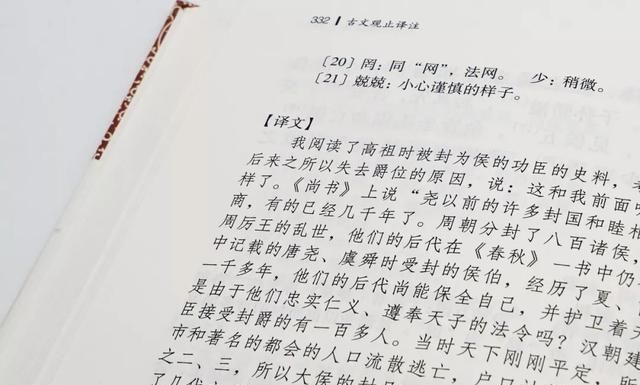 332 | 古文观止译注
[20] 罔：同“网”，法网。 少：稍微。
[21] 兢兢：小心谨慎的样子。
【译文】
我阅读了高祖时被封为侯的功臣的史料，
后来之所以失去爵位的原因，说：这和我前面
样了。《尚书》上说“尧以前的许多封国和睦相
商，有的已经几千年了。周朝分封了八百诸侯，
周厉王的乱世，他们的后代在《春秋》一书中仍
中记载的唐尧、虞舜时受封的侯伯，经历了夏、
一千多年，他们的后代尚能保全自己，并护卫着
是由于他们忠实仁义、遵奉天子的法令吗？汉朝建
臣接受封爵的有一百多人。当时天下刚刚平定，
市和著名的都会的人口流散逃亡，户口
之二、三，所以大侯的封